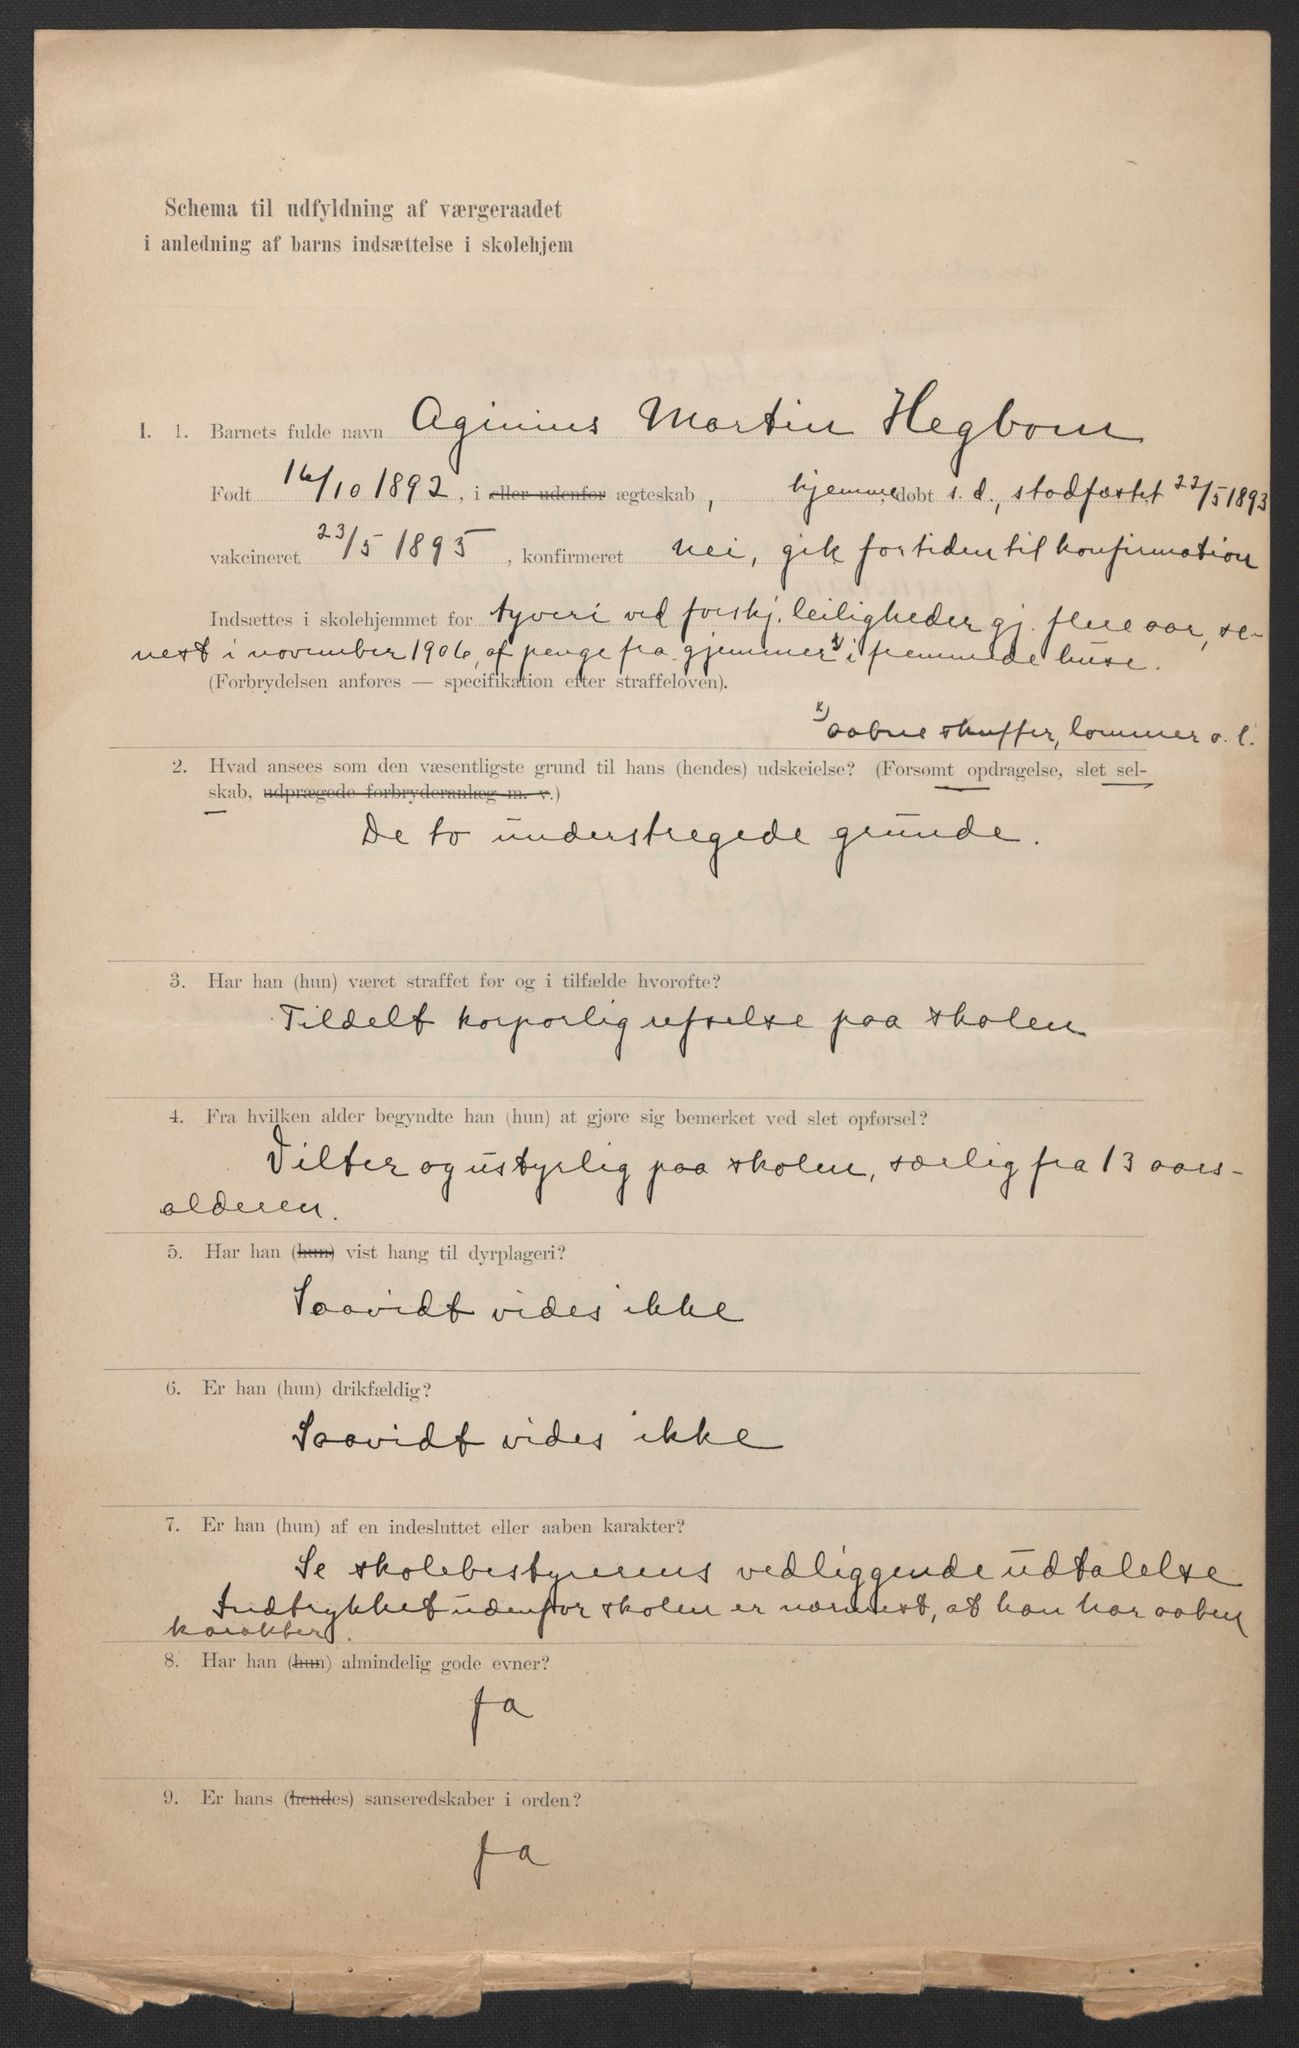 Schema til udfyldning af værgeraadet
i anledning af barns indsættelse i skolehjem
I. 1. Barnets fulde navn Aginius Martin Hegbom
Født 16/10 1892, i eller udenfor ægteskab, hjemmedøbt s. d., stadfæstet 22/5 1893
vakcineret 23/5 1895, konfirmeret nei, gik for tiden til konfirmation
Indsættes i skolehjemmet for tyveri ved forskj. leiligheder gj. flere aar, se-
nest i november 1906, af penge fra gjemmer x) i fremmede huse.
(Forbrydelsen anføres — specifikation efter straffeloven).
x) aabne skuffer, lommer o. l.
2. Hvad ansees som den væsentligste grund til hans (hendes) udskeielse? (Forsømt opdragelse, slet sel-
skab, udprægede forbryderanlæg m. v.)
De to understregede grunde.
3. Har han (hun) været straffet før og i tilfælde hvorofte?
Tildelt korporlig refselse paa skolen
4. Fra hvilken alder begyndte han (hun) at gjøre sig bemerket ved slet opførsel?
Vilter og ustyrlig paa skolen, særlig fra 13 aars-
alderen.
5. Har han (hun) vist hang til dyrplageri?
Saavidt vides ikke
6. Er han (hun) drikfældig?
Saavidt vides ikke
7. Er han (hun) af en indesluttet eller aaben karakter?
Se skolebestyrerens vedliggende udtalelse
Indtrykket udenfor skolen er nærmest, at han har aaben
karakter.
8. Har han (hun) almindelig gode evner?
Ja
9. Er hans (hendes) sanseredskaber i orden?
Ja